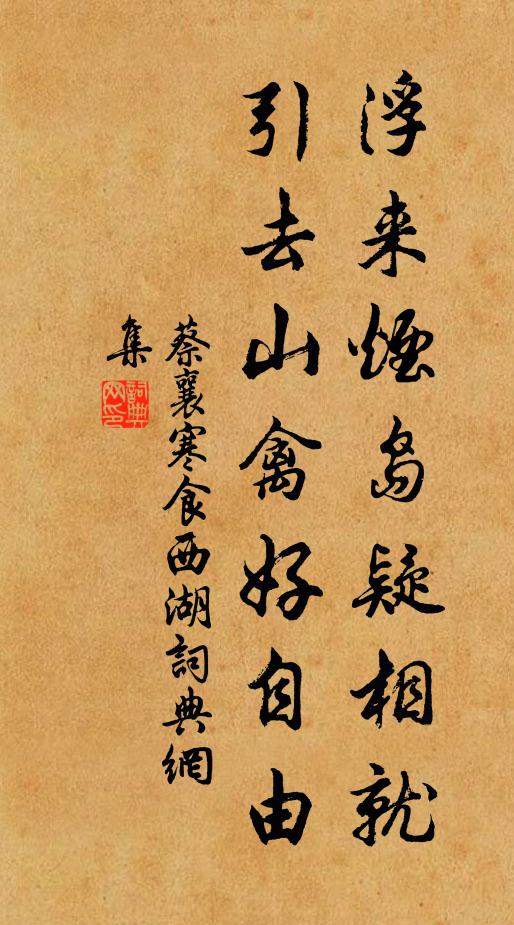 浮来煙島疑相就
引去山禽好自由
蔡襄寒食西湖詞典網
集
詞典
网印